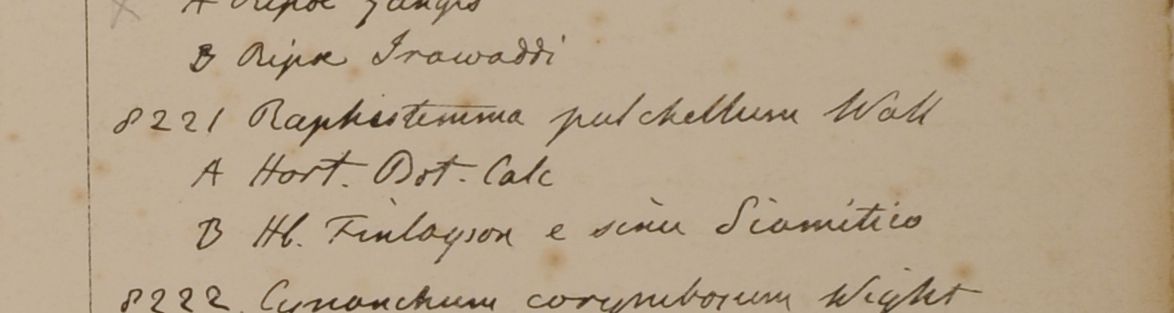 A Ripæ Gangis
B Ripæ Irawaddi
8221 Raphistemma pulchellum Wall
A Hort. Bot. Calc
B Hb. Finlayson e sinu Siamitico
8222. Cynanchum corymbosum Wight